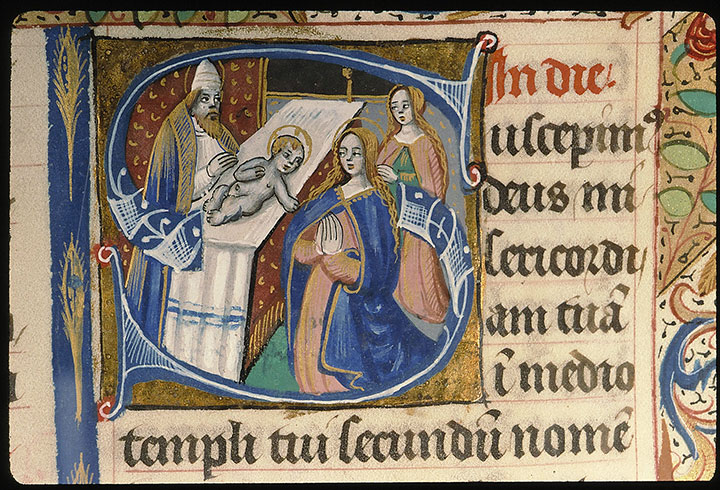 In die.
Suscepim⁹
deus mi
sericordi
am tuā
ī medio
templi tui secundū nomē